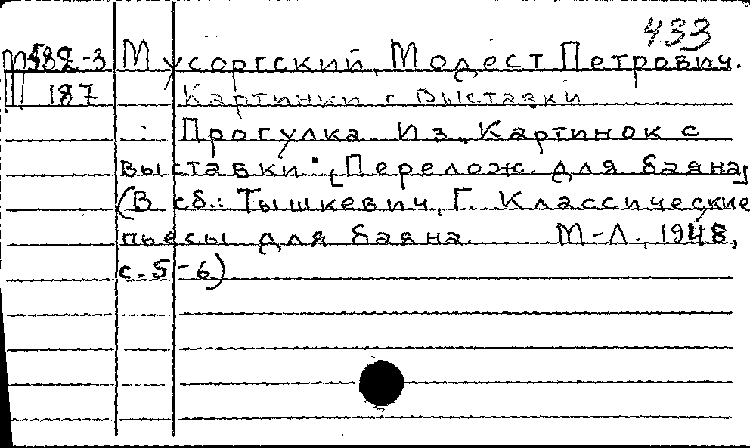 433
М582-3 Мусоргский, Модест Петрович.
187 Картинки с выставки
Прогулка из „Картинок с
выставки". [Перелож. для баяна]
(В сб.: Тышкевич, Г. Классические
пьесы для баяна. М-Л., 1948,
с. 5-6)